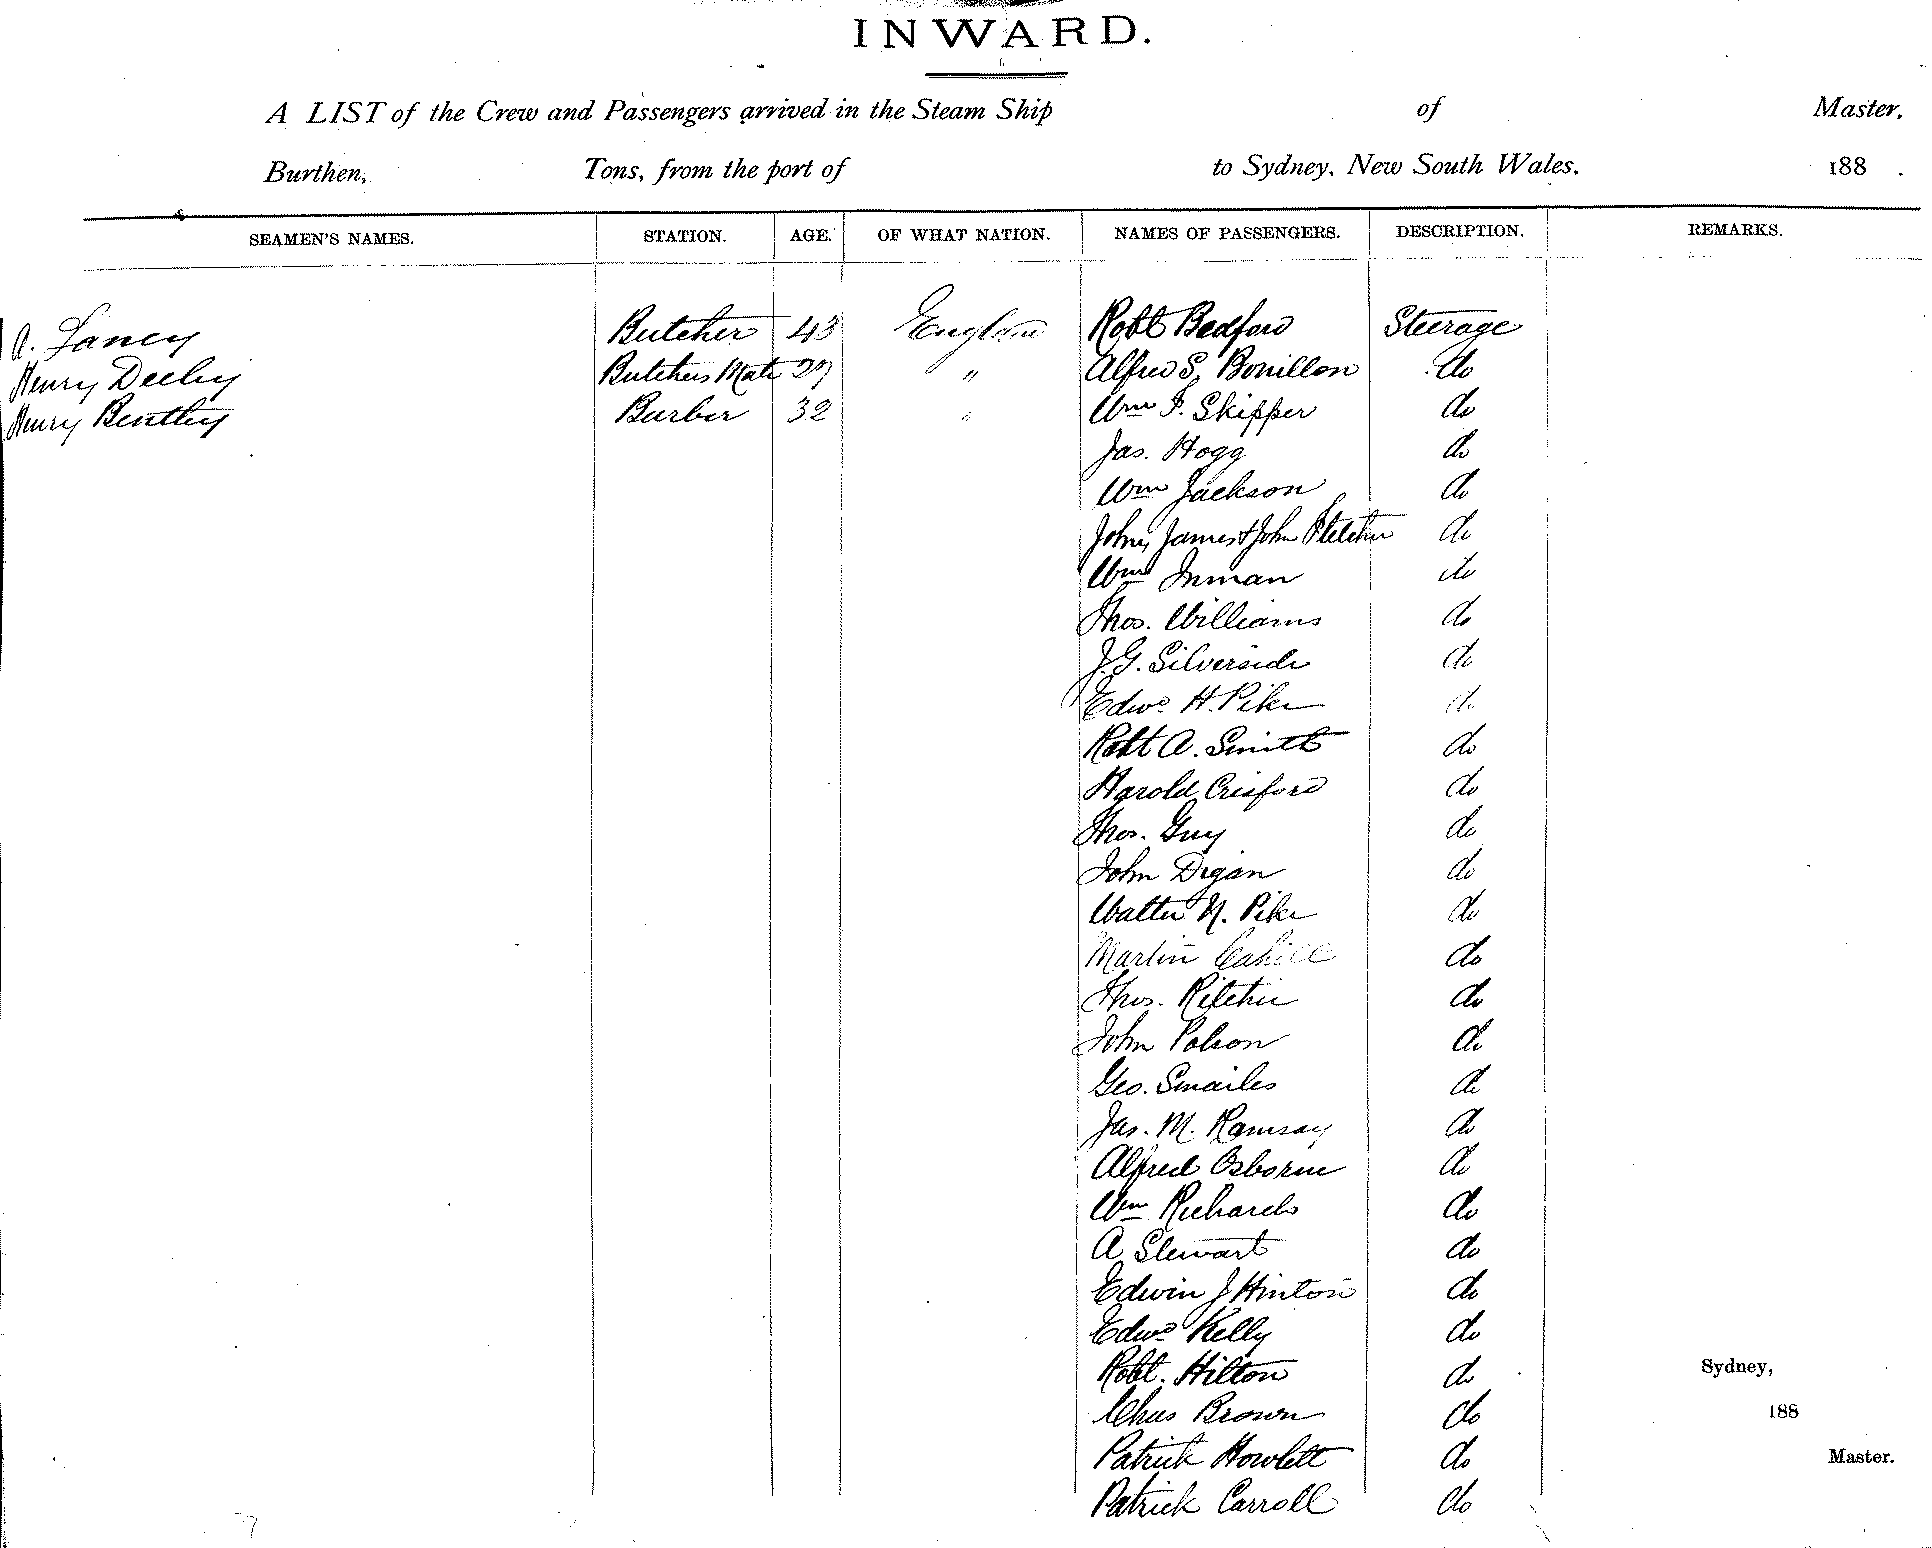 INWARD.
A LIST of the Crew and Passengers arrived in the Steam Ship of Master,
Burthen, Tons, from the port of to Sydney, New South Wales, 188 .
SEAMEN'S NAMES. STATION. AGE. OF WHAT NATION. NAMES OF PASSENGERS. DESCRIPTION. REMARKS.
A. Butcher 43 England Robt Bedford Steerage
Henry Deeby Butchers Mate 27 " Alfred S. Bouillon do
Henry Bentley Barber 32 " Wm F. Skipper do
Jas. Hogg do
Wm Jackson do
John, James & John Fletcher do
Wm Inman do
Thos. Williams do
J. G. Silverside do
Edwd H. Pike do
Robt A. Smith do
Harold Crisford do
Thos. Guy do
John Digan do
Walter N. Pike do
Martin Cahill do
Thos. Ritchie do
John Polson do
Geo. Smailes do
Jas. M. Ramsay do
Alfred Osborne do
Wm Richards do
A Stewart do
Edwin J Hinton do
Edwd Kelly do
Robt. Hilton do Sydney,
Chas Brown do 188
Patrick Howlett do Master.
Patrick Carroll do